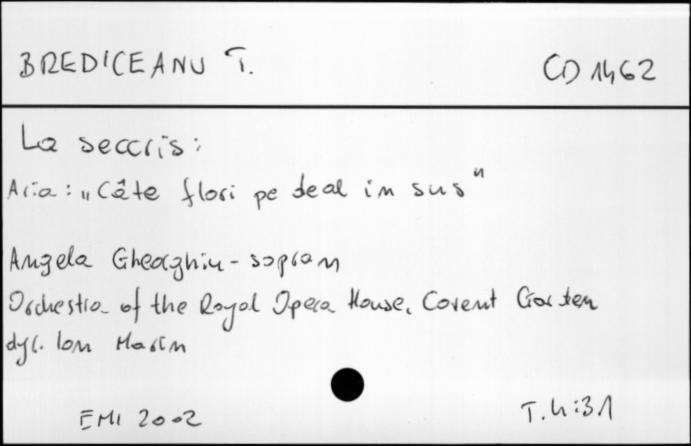 BREDICEANU T.
CD 1462
La seccris:
Aria: „Câte flori pe deal in sus"
Angela Gheorghiu - sopran
Orchestra of the Royal Opera House, Covent Garden
dyr. Ion Marin
EMI 2002
T. 4:31